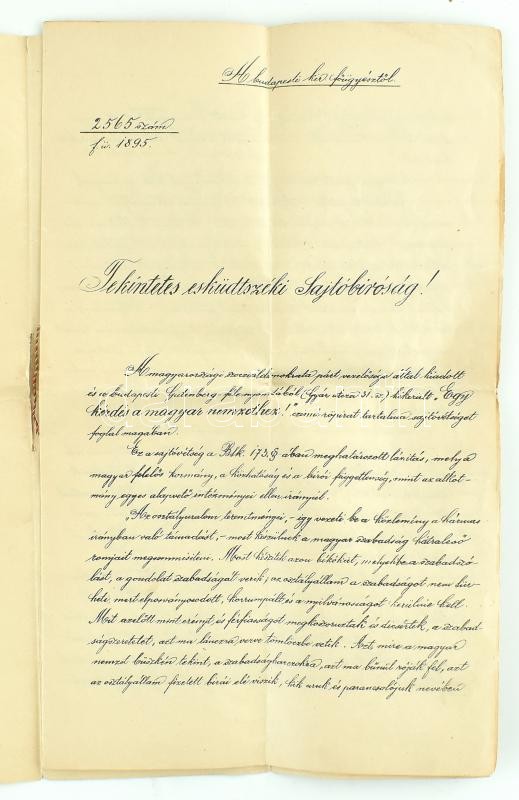 A budapesti kir főügyésztől.
2565 szám
fü. 1895.
Tekintetes esküdtszéki Sajtóbiróság!
A magyarországi szocziáldemokrata párt vezetősége által kiadott
és a budapesti Gutenberg-fényomdából (Gyár utcza 31. sz.) kikerült "Egy
kérdés a magyar nemzethez!" czimü röpirat tartalma sajtóvétséget
foglal magában.
Ez a sajtóvétség a Btk. 173.§-ában meghatározott lázitás, mely a
magyar felelős kormány, a közhatóság és a birói függetlenség, mint az alkot-
mány egyes alapvető intézményei ellen irányúl.
"Az osztályuralom teremtményei, - igy vezeti be a közlemény a hármas
irányban való támadást, - most készülnek a magyar szabadság hátralevő
romjait megsemmisiteni. Most készitik azon békókat, melyekbe a szabad szó-
lást, a gondolat szabadságát verik; az osztályállam a szabadságot nem tűr-
heti, mert elposványosodott, korrumpált és a nyilvánosságot kerülnie kell.
Mit azelőtt mint erényt és férfiasságot megkoszorúztak és dicsértek, a szabad-
ságszeretetet, azt ma lánczra verve tömlöczbe vetik. Azt, mire a magyar
nemzet büszkén tekint, a szabadságharczokra, azt ma bűnül róják fel, azt
az osztályállam fizetett birái elé viszik, kik uruk és parancsolójuk nevében